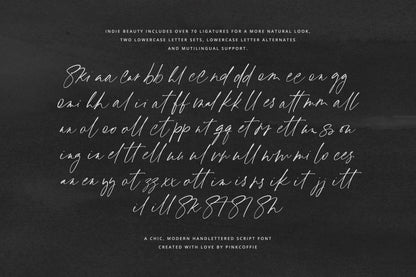 INDIE BEAUTY INCLUDES OVER 70 LIGATURES FOR A MORE NATURAL LOOK,
TWO LOWERCASE LETTER SETS, LOWERCASE LETTER ALTERNATES
AND MUTILINGUAL SUPPORT.
aa bb hl el nd dd om ee on gg
omi hh al ir at ff kk ll es att mm all
an ol oo oll et pp nt qq et rr ett ss on
ing in el tt ell un ul uu ll lo ees
an en yy ot zz xx ott im is rs ik it jj itt
il ill Sk ST Sl Sh
A CHIC, MODERN HANDLETTERED SCRIPT FONT
CREATED WITH LOVE BY PINKCOFFIE